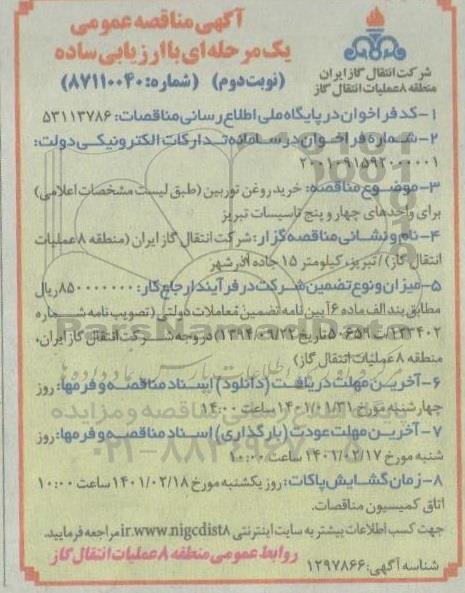 آگهی مناقصه عمومی
یک مرحله‌ای با ارزیابی ساده
(نوبت دوم) (شماره: ۸۷۱۱۰۰۴۰)
شرکت انتقال گاز ایران
منطقه ۸ عملیات انتقال گاز
۱-کد فراخوان در پایگاه ملی اطلاع رسانی مناقصات: ۵۳۱۱۳۷۸۶
۲-شماره فراخوان در سامانه تدارکات الکترونیکی دولت:
۲۰۰۱۰۹۱۵۹۲۰۰۰۰۰۱
۳-موضوع مناقصه: خرید روغن توربین (طبق لیست مشخصات اعلامی)
برای واحدهای چهار و پنج تاسیسات تبریز
۴-نام و نشانی مناقصه گزار: شرکت انتقال گاز ایران (منطقه ۸ عملیات
انتقال گاز) / تبریز، کیلومتر ۱۵ جاده آذرشهر
۵-میزان و نوع تضمین شرکت در فرآیند ارجاع کار: ۸۵۰۰۰۰۰۰۰ ریال
مطابق بند الف ماده ۶ آیین نامه تضمین معاملات دولتی (تصویب نامه شماره
۱۲۳۴۰۲/ت۵۰۶۵۹ تاریخ ۱۳۹۴/۰۹/۲۲) در وجه شرکت انتقال گاز ایران،
منطقه ۸ عملیات انتقال گاز)
۶-آخرین مهلت دریافت (دانلود) اسناد مناقصه و فرمها: روز
چهارشنبه مورخ ۱۴۰۱/۰۱/۳۱ ساعت ۱۴:۰۰
۷-آخرین مهلت عودت (بارگذاری) اسناد مناقصه و فرمها: روز
شنبه مورخ ۱۴۰۱/۰۲/۱۷ ساعت ۱۰:۰۰
۸-زمان گشایش پاکات: روز یکشنبه مورخ ۱۴۰۱/۰۲/۱۸ ساعت ۱۰:۰۰
اتاق کمیسیون مناقصات.
جهت کسب اطلاعات بیشتر به سایت اینترنتی ir.www.nigcdist۸ مراجعه فرمایید.
روابط عمومی منطقه ۸ عملیات انتقال گاز
شناسه آگهی: ۱۲۹۷۸۶۶